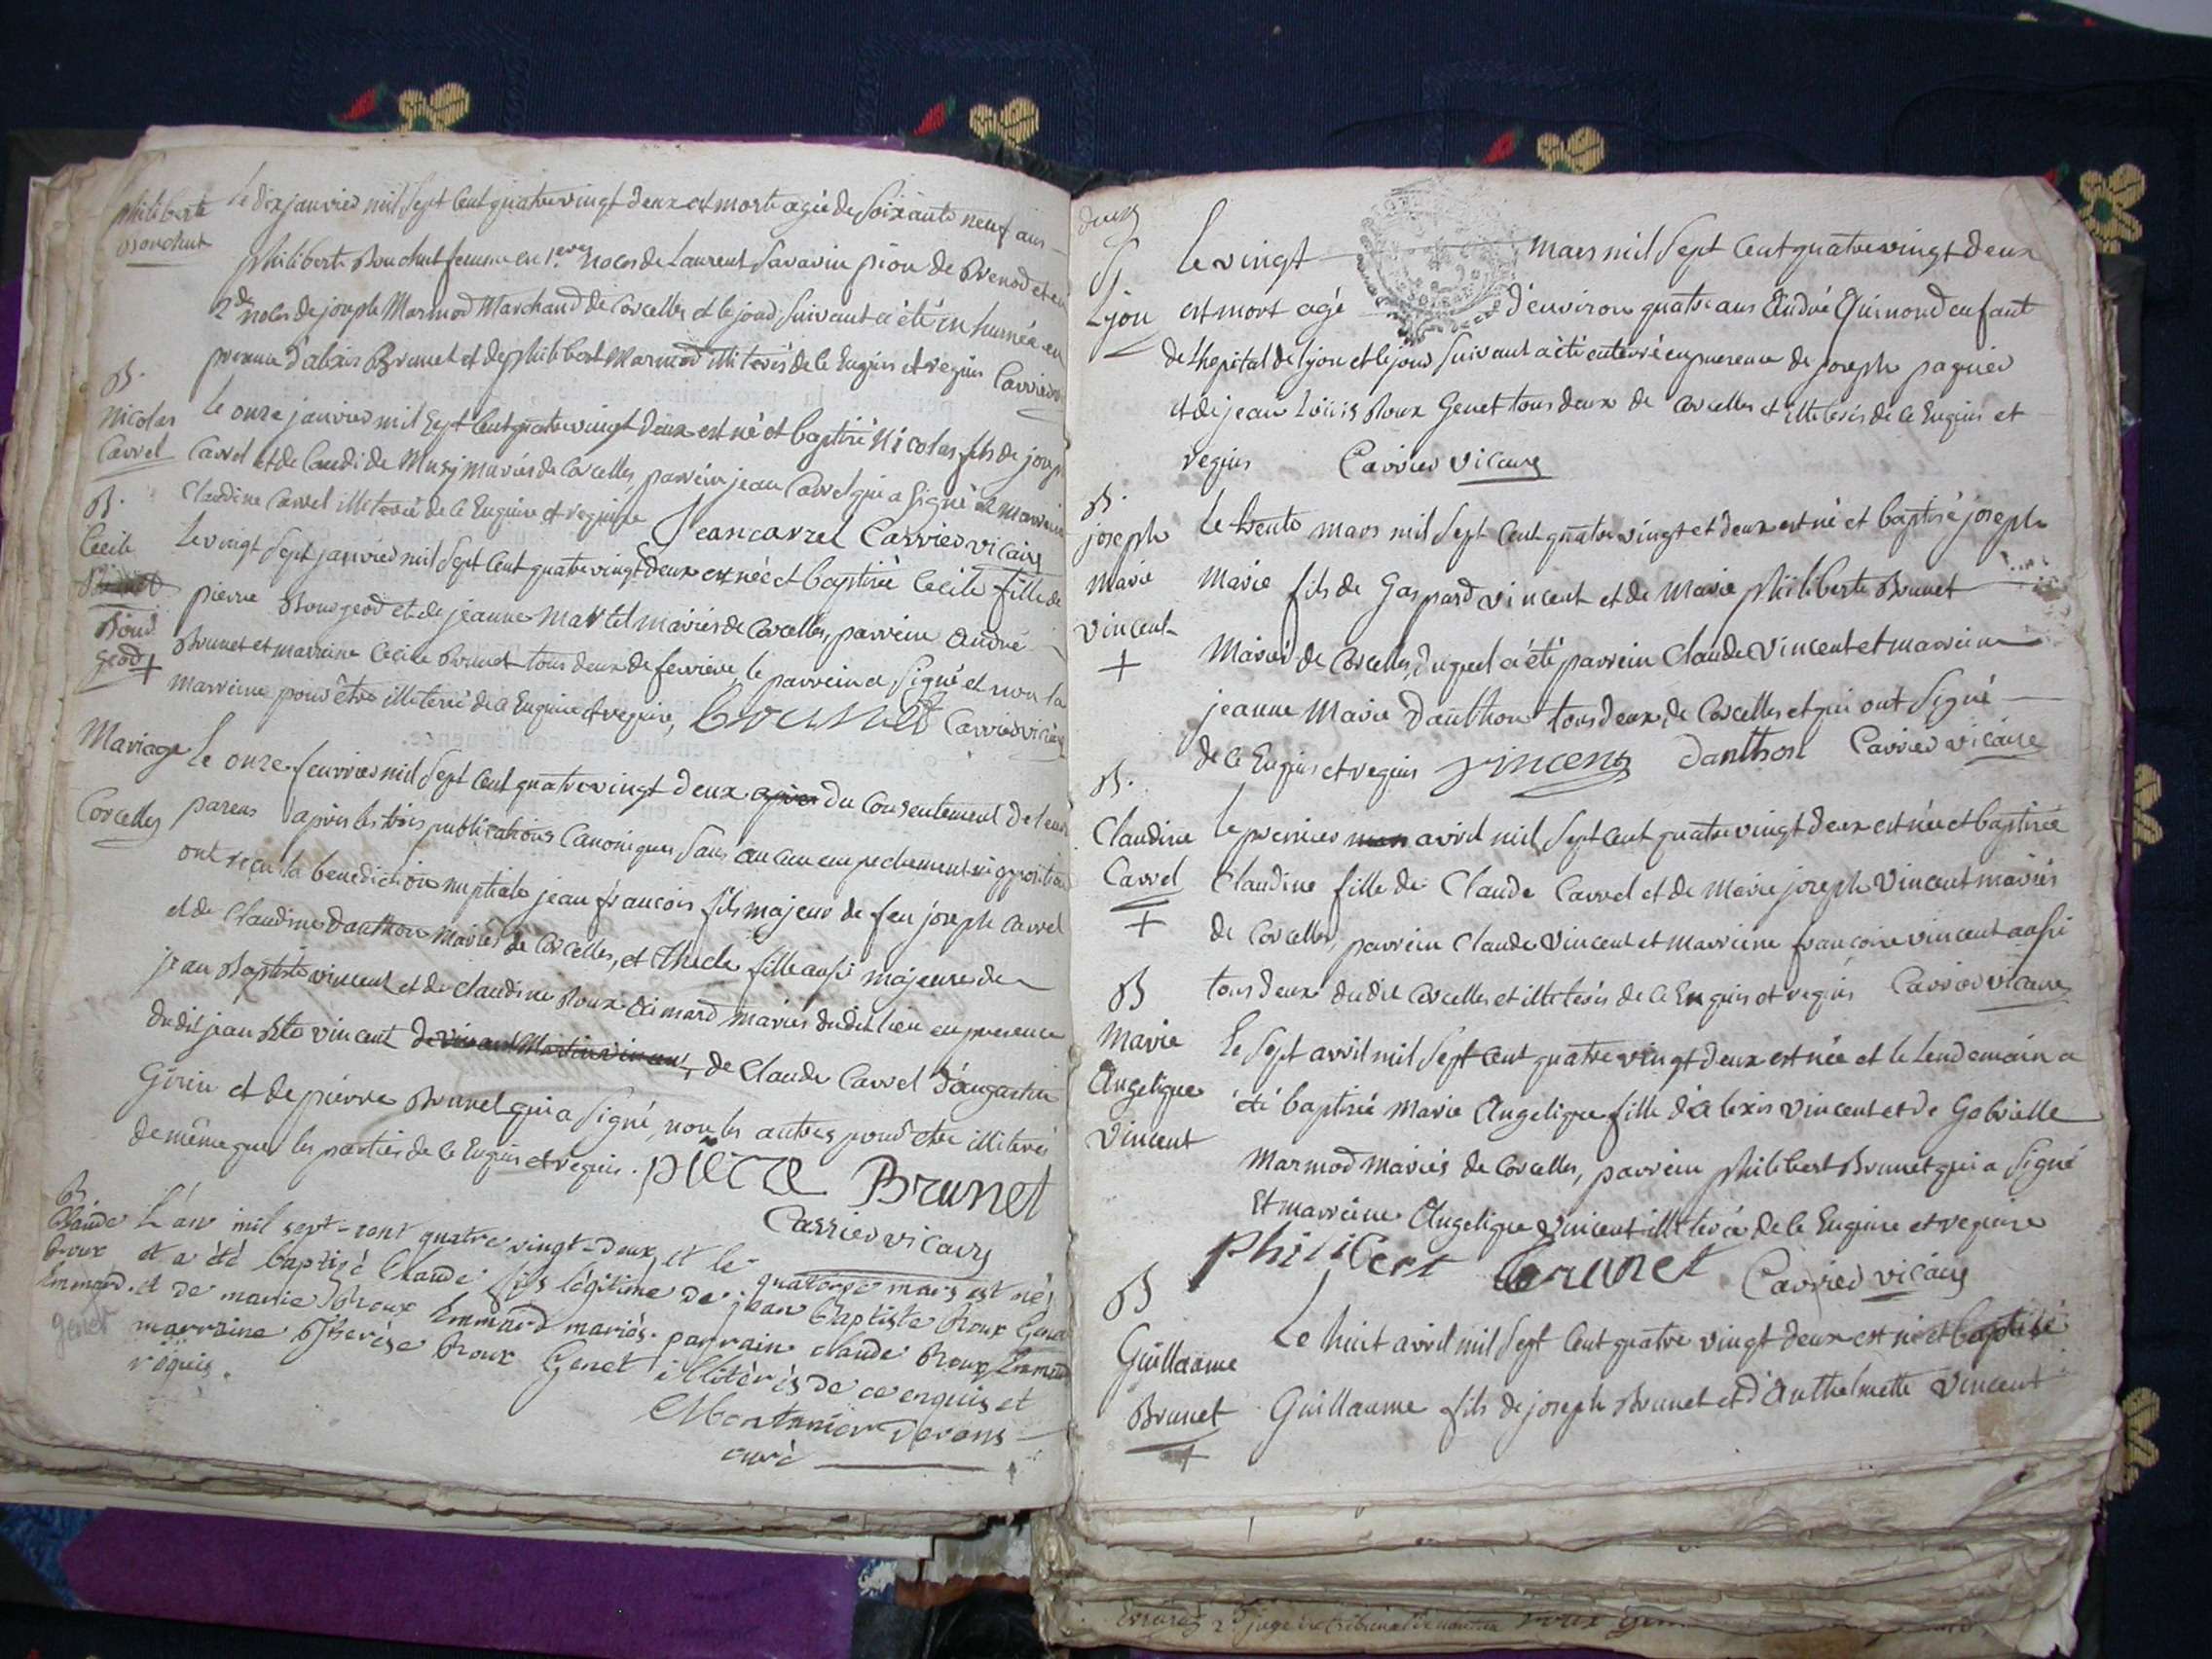 philiberte
Bouchut
le dix janvier mil sept cent quatre vingt deux est morte agée de soixante neuf ans
philiberte Bouchut femme en 1eres noces de Laurent Savarin pion de Brenod et en
2des noces de joseph Marmod Marchand de Corcelles et le jour suivant a été inhumée en
presence d'alexis Brunet et de philibert Marmod illiterés de ce Enquis et requis Carrier vic
B.
nicolas
Carrel
le onze janvier mil sept cent quatre vingt deux est né et baptisé Nicolas fils de joseph
Carrel et de Claudi de Musy mariés de Corcelles, parrein jean Carrel qui a signé et marreine
Claudine Carrel illiterée de ce Enquise et requise Jean carrel Carrier vicaire
B.
Cecile
Bour
geod +
Le vingt sept janvier mil sept cent quatre vingt deux est née et baptisée Cecile fille de
pierre Bourgeod et de jeanne Martel mariés de Corcelles, parrein André
Brunet et marreine Cecile Brunet tous deux de ferriere, le parrein a signé et non la
marreine pour être illiterée de ce Enquise et requise, brunet Carrier vicaire
Mariage
Corcelles
le onze fevrier mil sept cent quatre vingt deux apres du Consentement de leurs
parens après les trois publications Canoniques sans aucun empechement ni opposition
ont reçu la benediction nuptiale jean françois fils majeur de feu joseph Carrel
et de Claudine Danthon mariés de Corcelles, et thecle fille aussi majeure de
jean Baptiste vincent et de claudine Roux Aimard mariés dudit lieu en presence
dudit jean Bte vincent de Claude Carrel d'augustin
Girin et de pierre Brunet qui a signé, non les autres pour etre illiterés
de même que les parties de ce Enquis et requis. pierre Brunet
Carrier vicaire
B
Claude
Roux
Emmard
genet
L'an mil sept-cent quatre vingt-deux, et le quatorze mars est né,
et a été baptisé Claude fils légitime de jean Baptiste Roux Genet
et de marie Roux Emmard mariés. parrain claude Roux Emmard
marraine Thérèse Roux Genet illitérés de ce enquis et
requis.
Montanier Derons
curé
deux
Lyon
Le vingt mars mil sept cent quatre vingt deux
est mort agé d'environ quatre ans André Quinond enfant
de l'hopital de lyon et le jour suivant a été enterré en presence de joseph pagnier
et de jean Loüis Roux Genet tous deux de Corcelles et illiterés de ce Enquis et
requis Carrier vicaire
B.
joseph
Marie
vincent
+
Le trente mars mil sept cent quatre vingt et deux est né et baptisé joseph
Marie fils de Gaspard vincent et de Marie philiberte Brunet
Mariés de Corcelles, duquel a été parrein Claude Vincent et marreine
jeanne Marie Danthon tous deux de Corcelles et qui ont signé
de ce Enquis et requis vincent Danthon Carrier vicaire
B.
Claudine
Carrel
+
Le premier avril mil sept cent quatre vingt deux est née et baptisée
Claudine fille de Claude Carrel et de Marie joseph Vincent mariés
de Corcelles, parrein Claude Vincent et marreine françoise vincent aussi
tous deux dudit Corcelles et illiterés de ce Enquis et requis Carrier vicaire
B
Marie
Angelique
Vincent
Le sept avril mil sept cent quatre vingt deux est née et le lendemain a
été baptisée Marie Angelique fille d'Alexis Vincent et de Gabrielle
Marmod mariés de Corcelles, parrein philibert Brunet qui a signé
et marreine Angelique Vincent illiterée de ce Enquise et requise
philibert brunet Carrier vicaire
B
Guillaume
Brunet
+
Le huit avril mil sept cent quatre vingt deux est né et baptisé
Guillaume fils de joseph Brunet et d'Anthelmette Vincent